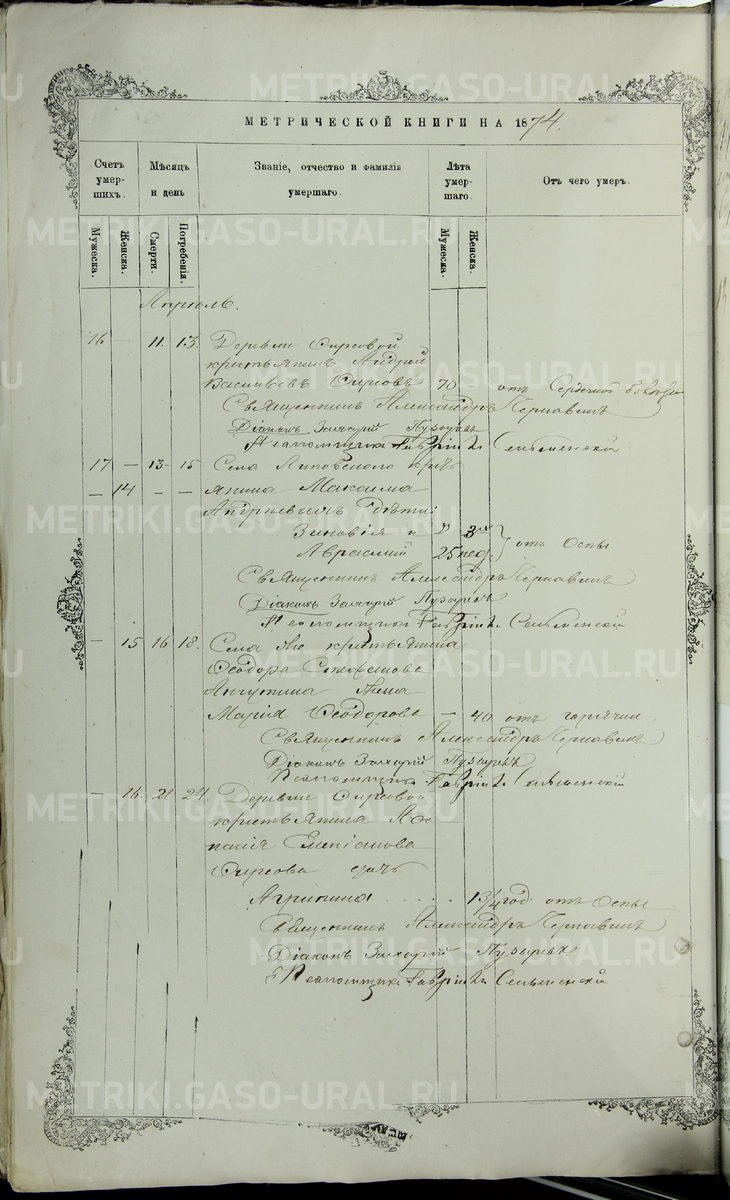 МЕТРИЧЕСКОЙ КНИГИ НА 1874.
Счетъ умер-шихъ.
Мѣсяцъ и день
Званіе, отчество и фамилія умершаго.
Лѣта умер-шаго.
Отъ чего умеръ.
Мужеска.
Женска.
Смерти.
Погребенія.
Мужеска.
Женска.
Апрѣль.
16 — 11. 13. Деревни Сирсовой
крестьянинъ Андрей
Васильевъ Сирсовъ 70 — отъ
Священникъ Александръ Чернавинъ
Діаконъ Захарій Пузыревъ
Псаломщикъ Гавріилъ Сельменскій
17 — 13 15 Села Липовскаго кресть
— 14 — — янина Максима
дѣти:
Зиновія и 3
Авраамій 25 нед. } отъ Оспы
Священникъ Александръ Чернавинъ
Діаконъ Захарій Пузыревъ
Псаломщикъ Гавріилъ Сельменскій
— 15 16 18. Села же крестьянина
Ѳеодора Стефанова
жена
Марія Ѳеодорова — 40 отъ горячки
Священникъ Александръ Чернавинъ
Діаконъ Захарій Пузыревъ
Псаломщикъ Гавріилъ Сельменскій
— 16. 21 24. Деревни Сирсовой
крестьянина Аѳо
насія
Сирсова дочь
Агрипина 1 3/4 год. отъ Оспы
Священникъ Александръ Чернавинъ
Діаконъ Захарій Пузыревъ
Псаломщикъ Гавріилъ Сельменскій
METRIKI.GASO-URAL.RU